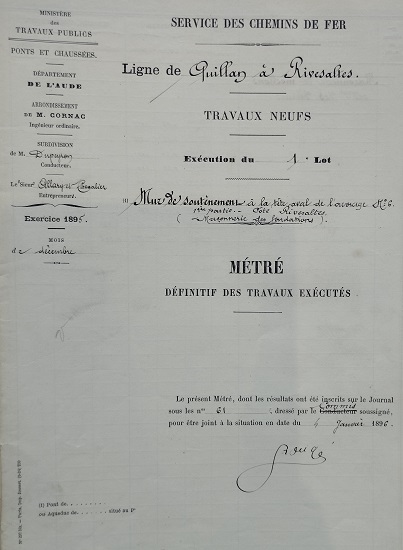 MINISTÈRE
des
TRAVAUX PUBLICS
PONTS ET CHAUSSÉES
DÉPARTEMENT
DE L'AUDE
ARRONDISSEMENT
DE M. CORNAC
Ingénieur ordinaire.
SUBDIVISION
de M. Dupuyron
Conducteur.
Le Sieur Allary et Cavalier
Entrepreneurs.
Exercice 1895.
MOIS
de décembre
SERVICE DES CHEMINS DE FER
Ligne de Quillan à Rivesaltes.
TRAVAUX NEUFS
Exécution du 1er Lot
(1) Mur de soutènement à la tête aval de l'ouvrage No 6.
1ère partie - Côté Rivesaltes.
(Maçonnerie des fondations).
MÉTRÉ
DÉFINITIF DES TRAVAUX EXÉCUTÉS
Le présent Métré, dont les résultats ont été inscrits sur le Journal
sous les nos 61 , dressé par le Commis Conducteur soussigné,
pour être joint à la situation en date du 4 Janvier 1896.
(1) Pont de
ou Aqueduc de situé au Pt